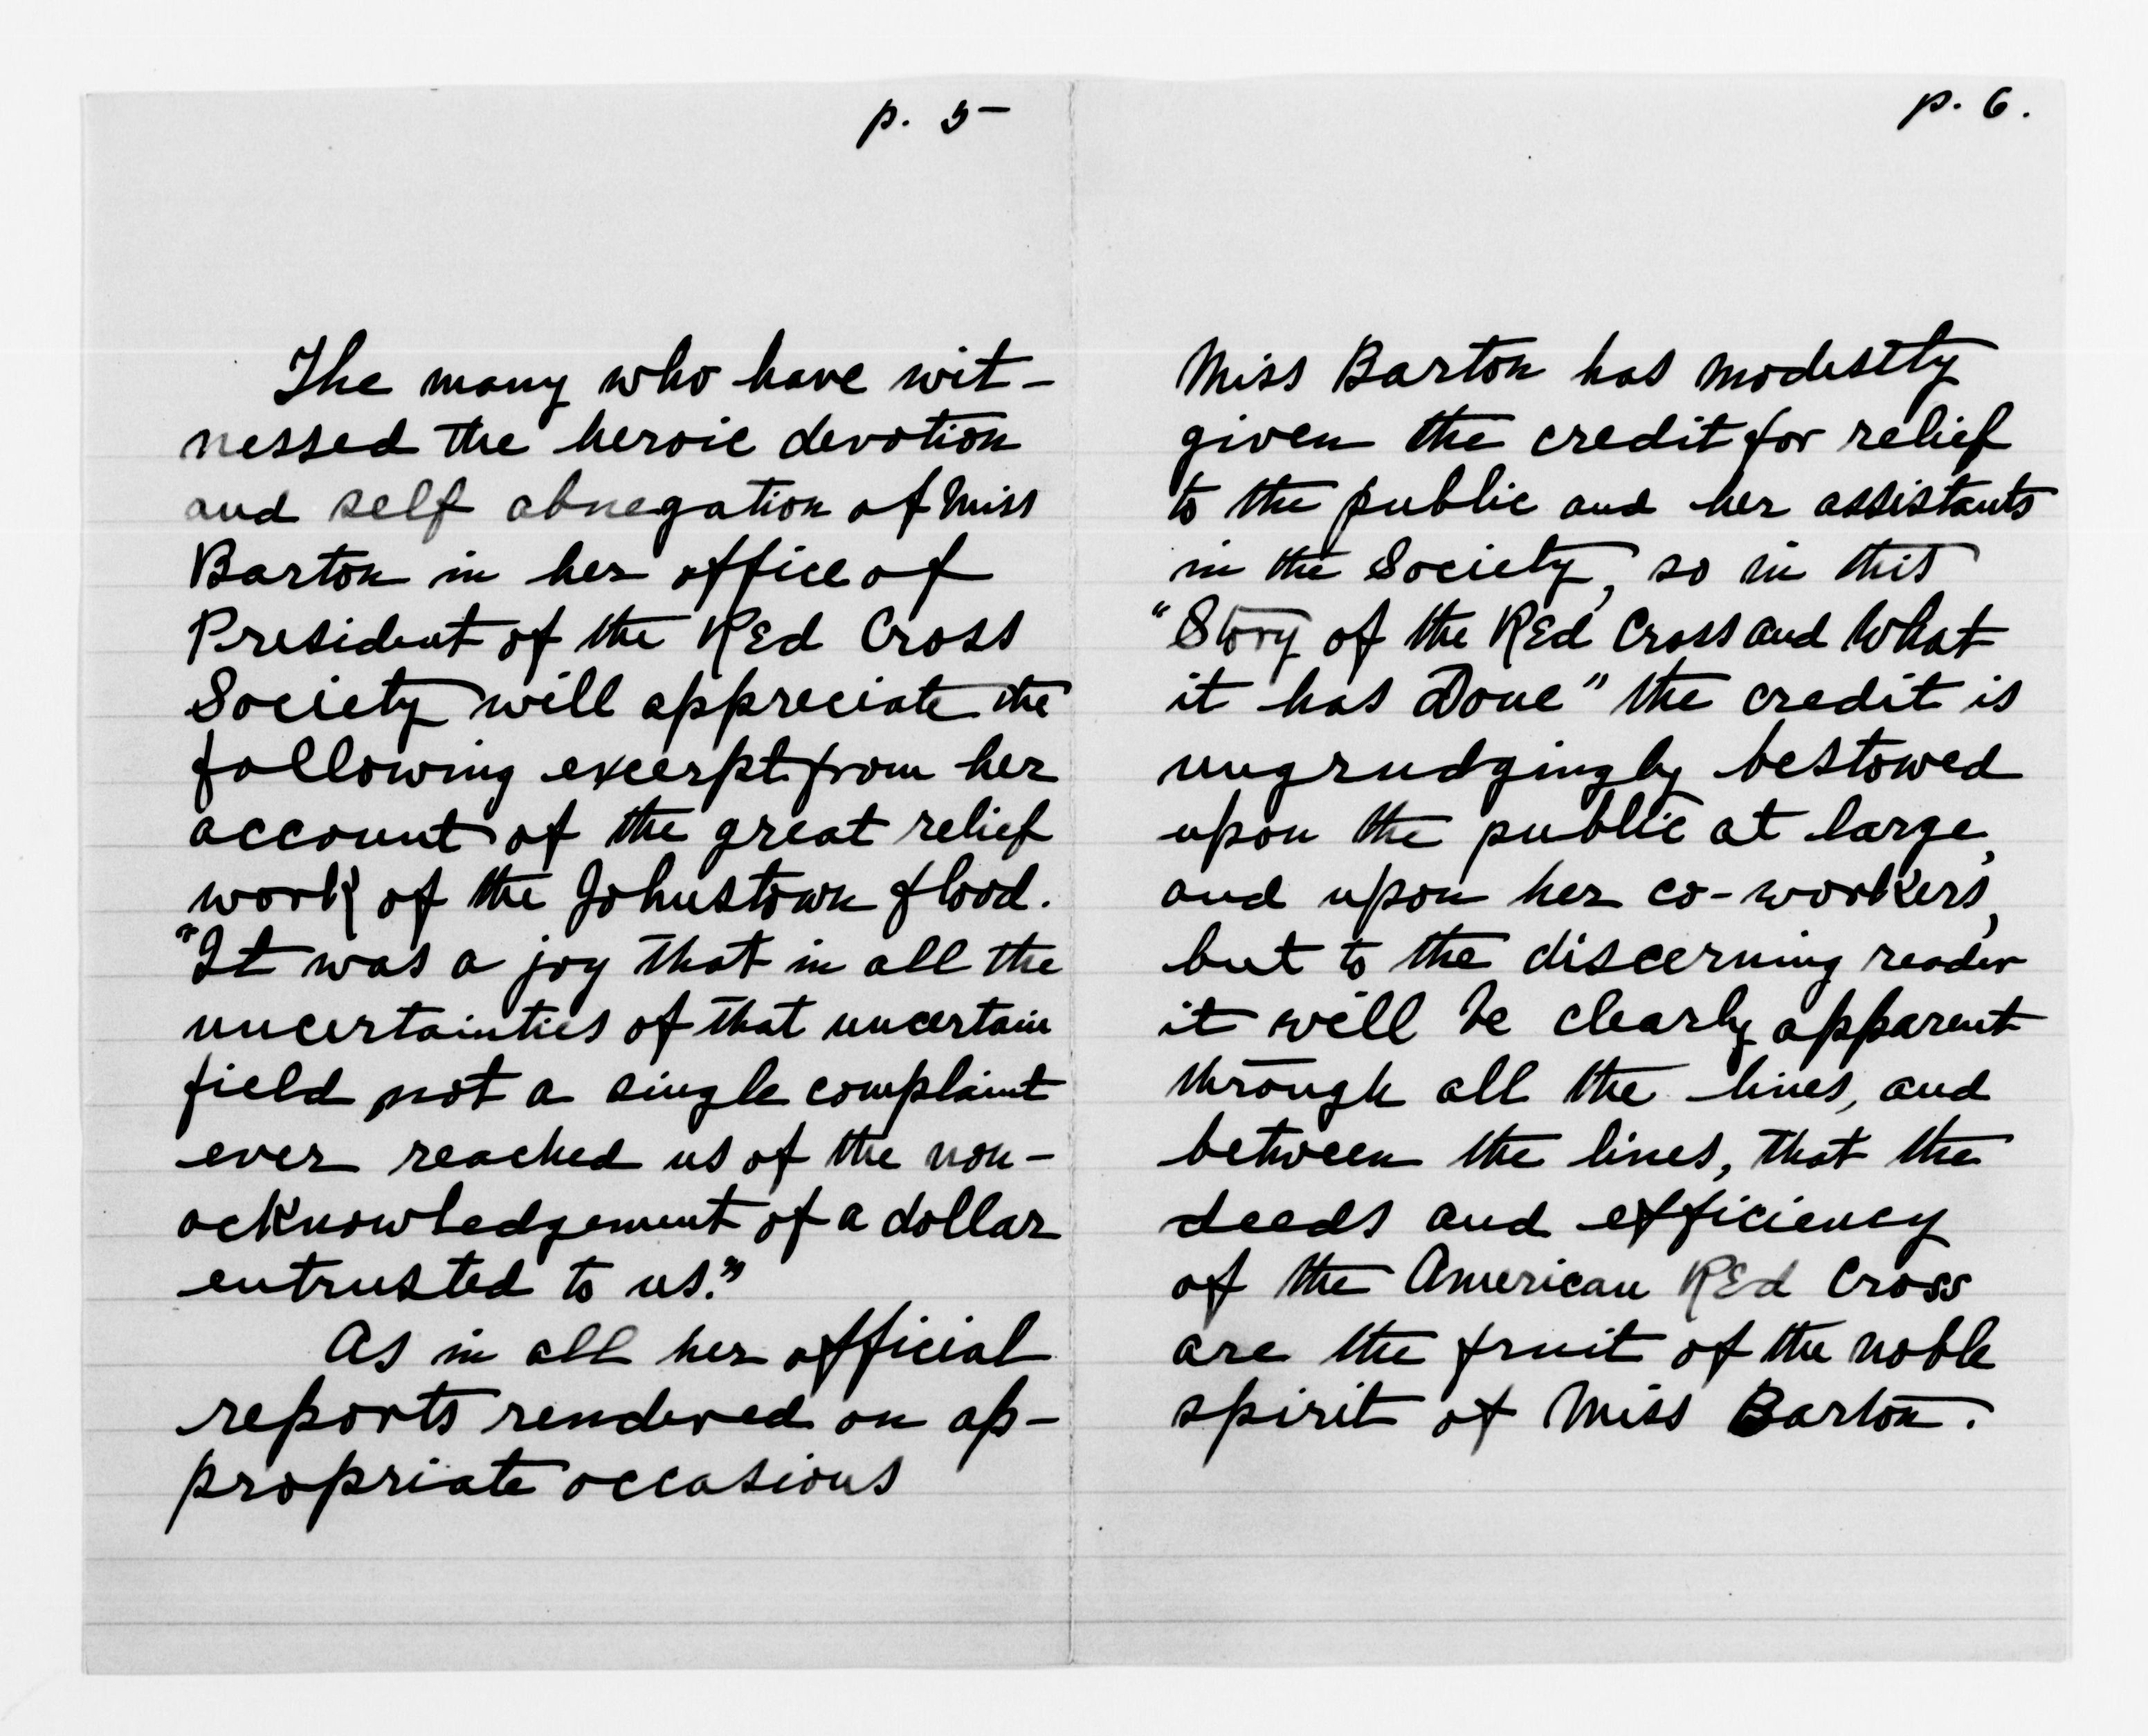 p. 5
The many who have wit-
nessed the heroic devotion
and self abnegation of Miss
Barton in her office of
President of the Red Cross
Society will appreciate the
following excerpt from her
account of the great relief
work of the Johnstown flood.
"It was a joy that in all the
uncertainties of that uncertain
field not a single complaint
ever reached us of the non-
acknowledgement of a dollar
entrusted to us."
As in all her official
reports rendered on ap-
propriate occasions
p. 6.
Miss Barton has modestly
given the credit for relief
to the public and her assistants
in the Society, so in this
"Story of the Red Cross and What
it has Done" the credit is
ungrudgingly bestowed
upon the public at large,
and upon her co-workers,
but to the discerning reader
it will be clearly apparent
through all the lines, and
between the lines, that the
deeds and efficiency
of the American Red Cross
are the fruit of the noble
spirit of Miss Barton.